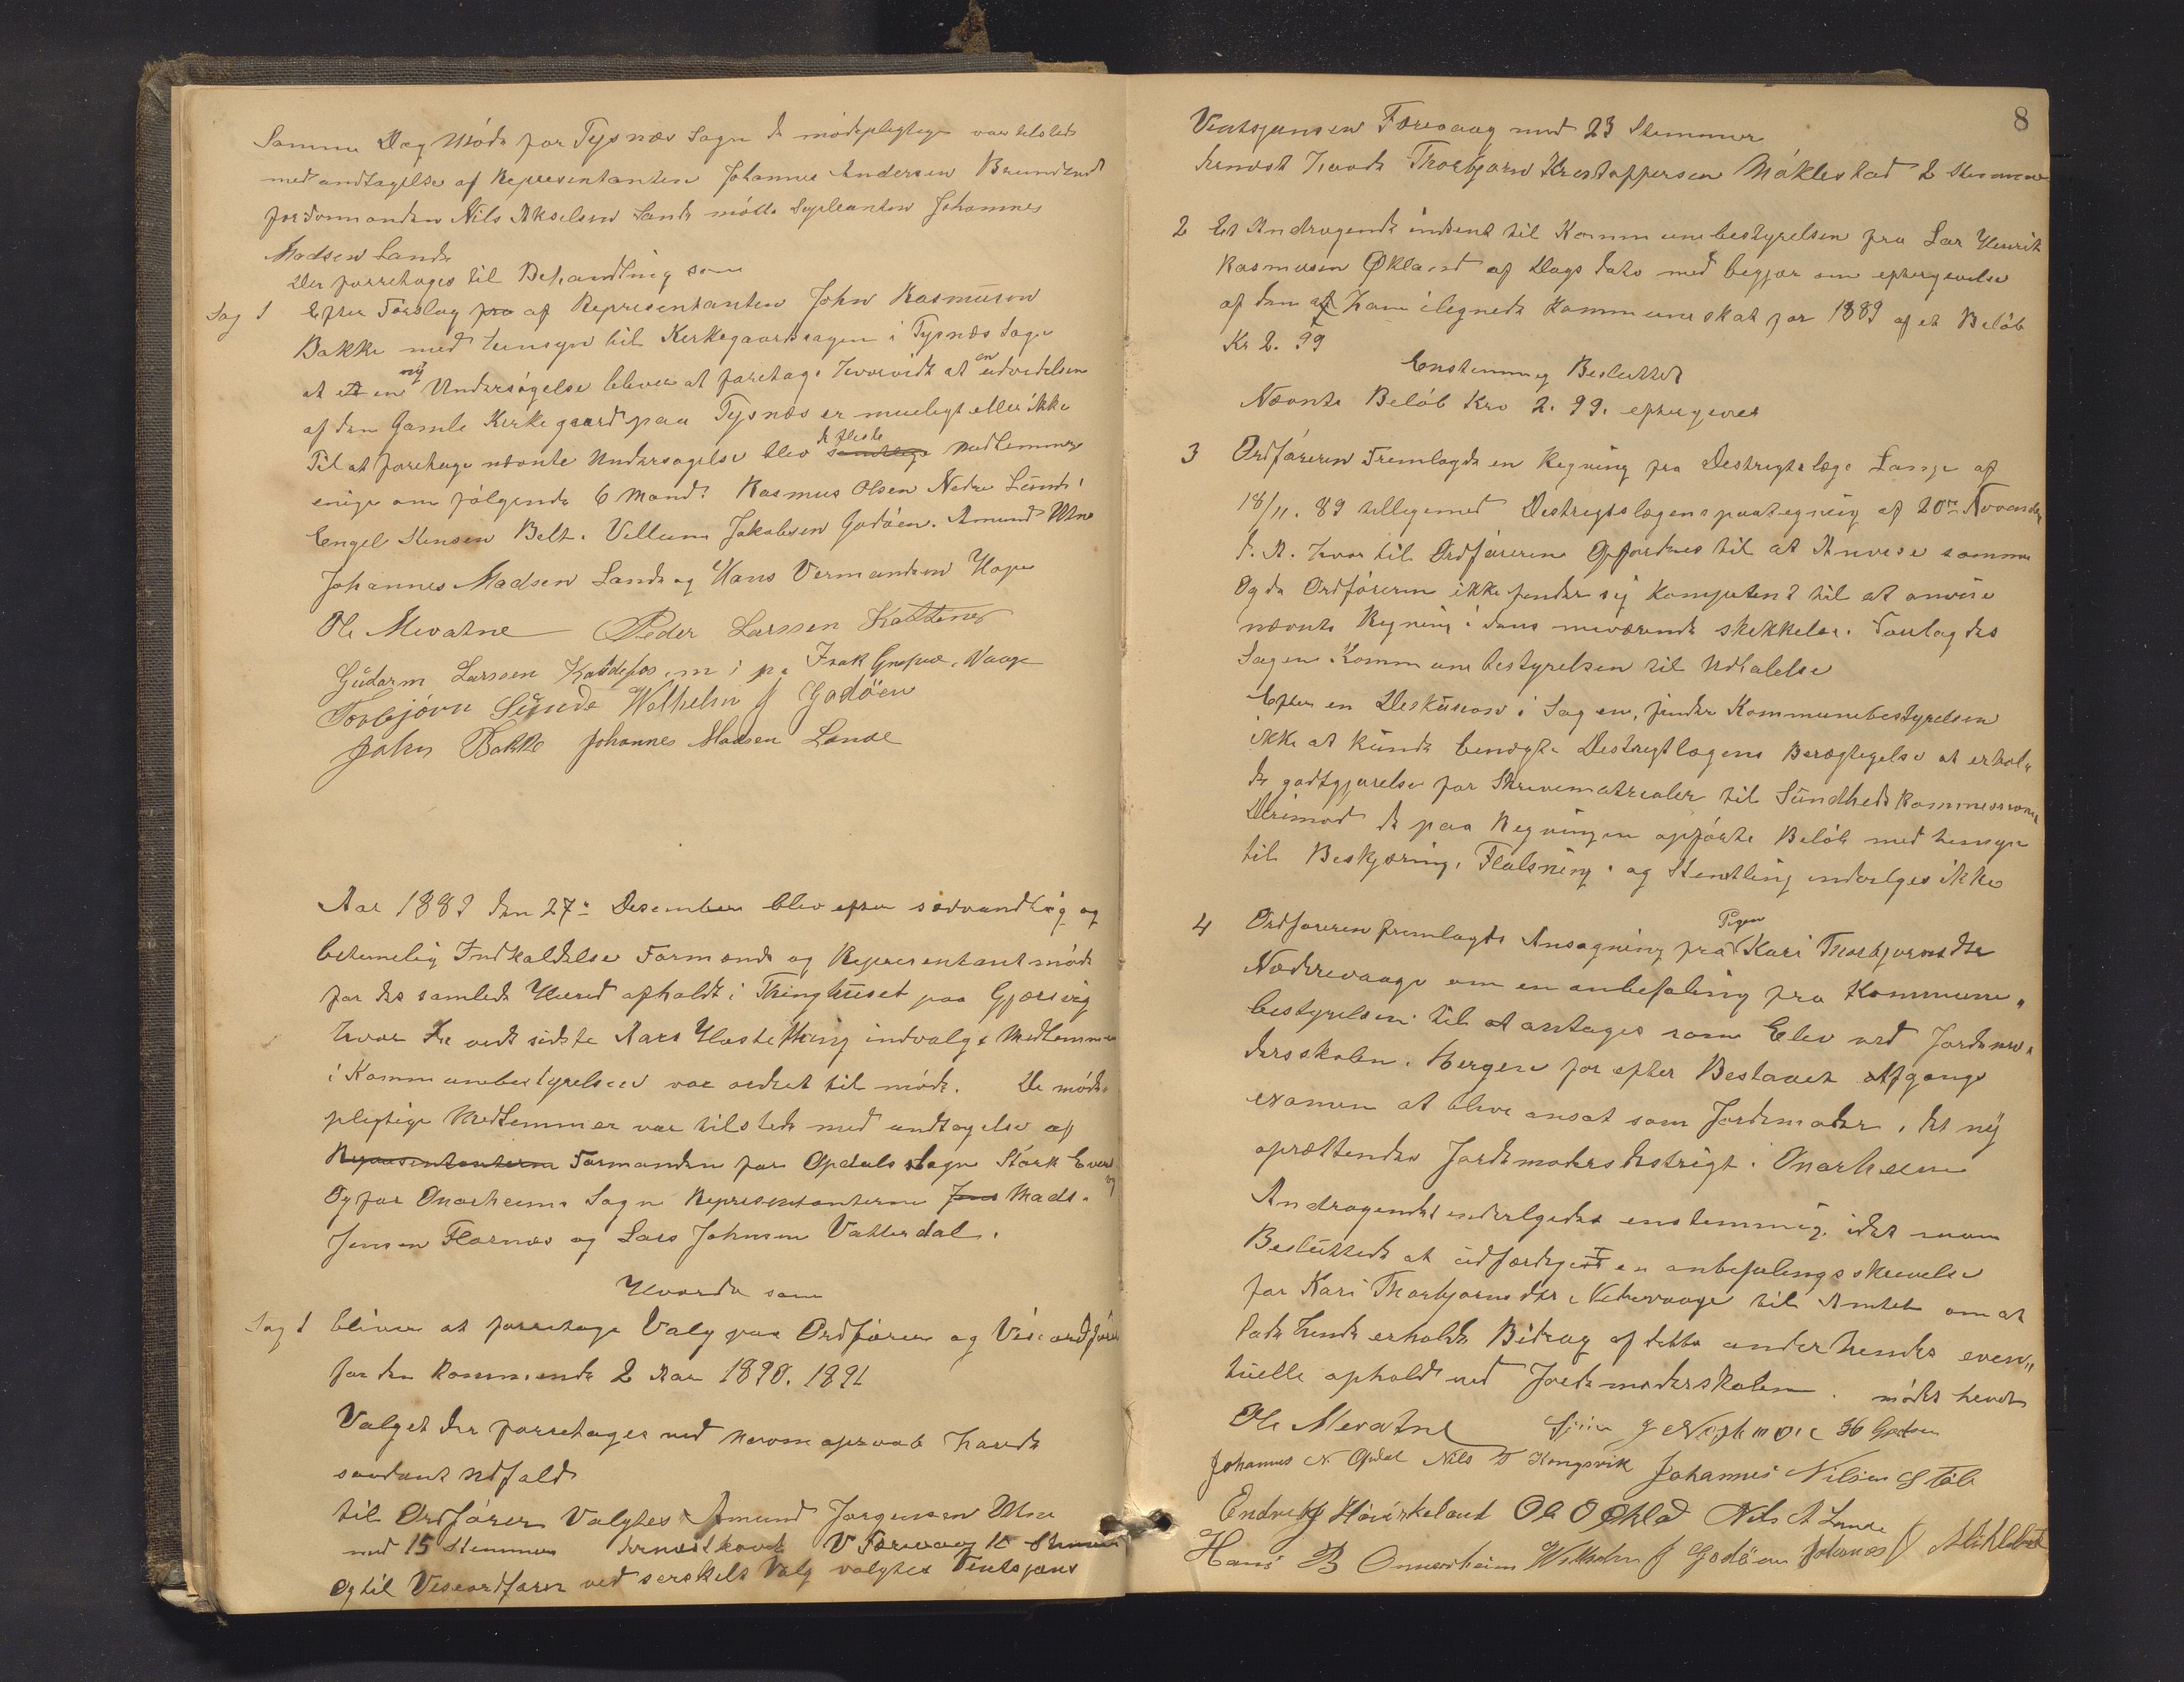 Samme Dag Møde for Tysnæs Sogn de mødepligtige var tilstede
med undtagelse af Representanten Johannes Andersen
for Formanden Nils Akselsen Lande mötte Supleanten Johannes
Madsen Lande
Der forretages til Behandling som
Sag 1 Efter Forslag fra af Representanten John Rasmusen
Bakke med hensyn til Kirkegaardssagen i Tysnæs Sogn
at et en ny Undersögelse bliver at foretage hvorvidt at en udvidelsen
af den Gamle Kirkegaard paa Tysnæs er mueligt eller ikke
Til at foretage nævnte Undersøgelse blev samtlige de fleste Medlemmer
enige om fölgende 6 Mænd: Rasmus Olsen Nedre Lunde
Engel Stensen Belt. Vellum Jakobsen Godöen. Amund Utne
Johannes Madsen Lande og Hans Vermundsen Hope
Ole Mevatne Peder Larssen Kattenes
Gudorm Larssen m i p. Isak Gripne, Vaage
Torbjörn Sunde Wilhelm J Godöen
John Bakke Johannes Madsen Lande
Aar 1889 den 27de Desember blev efter sædvandlig og
betimelig Indkaldelse Formands og Representantmöde
for det samlede Herred afholdt i Thinghuset paa Gjersvig
hvor de ved sidste Aars Høstething indvalgte Medlemmer
i Kommunebestyrelsen var ordret til möde. De möde-
pligtige Medlemmer var tilstede med undtagelse af
Representanterne Formanden for Opdals Sogn Störk
Og for Onarheims Sogn Representanterne Jens Mads
Jensen Flornæs og Lars Johnsen Vatterdal.
Hvorda som
Sag 1 bliver at forretage Valg paa Ordförer og Viseordförer
for den kommende 2 Aar 1890. 1891
Valget der forretages ved Navneopraab havde
saadant Udfald
til Ordförer Valgtes Amund Jørgensen Utne
med 15 Stemmer dernæst havde V Færevaag 10 Stemmer
Og til Viseordförer ved serskilt Valg valgtes Ventsjans
8
Ventsjansen Færevaag med 23 Stemmer
dernæst havde Thorbjørn Kristoffersen Måklestad 2 Stemmer
2 Et Andragende indsent til Kommunebestyrelsen fra Lar Henrik
Rasmusen Økland af Dags dato med begjær om eftergivelse
af den af ham ilegnede Kommuneskat for 1889 af et Beløb
Kr 2. 99
Enstemmig Besluttet
Nævnte Belöb Kro 2. 99. eftergives
3 Ordføreren Fremlagde en Regning fra Destrigtslæge Lange af
18/11. 89 tilligemed Destrigtslægens paategning af 20de November
d. A. hvor til Ordföreren Opfordres til at Anvise samme
Og da Ordföreren ikke finder sig Kompetent til at anvise
nævnte Regning i dens nuværende skikkelse. Forelagdes
Sagen Kommunebestyrelsen til Udtalelse
Efter en Diskusion i Sagen, finder Kommunebestyrelsen
ikke at kunde benægte Destrigtlægens Berægtigelse at erhol-
de godtgjørelse for Skrivematrealer til Sundhedskommissionen
Derimod de paa Regningen opförte Belöb med hensyn
til Beskjæring, Flalsning og Stentling indvilges ikke
4 Ordføreren fremlagde Ansøgning fra Pigen Kari Thorbjørnsdtr
Nedrevaage om en anbefaling fra Kommune-
bestyrelsen til at antages som Elev ved Jordemo-
derskolen i Bergen for efter Bestaaet Afgangs
examen at blive ansat som Jordemoder i det ny
oprættende Jordemoderdistrigt i Onarheim
Andragendet indvilgedes enstemmig. idet man
Besluttede at udfærdiges en anbefalingsskrivelse
for Kari Thorbjørnsdtr Nedrevaage til Amtet om at
lade hende erholde Bidrag af dette under hendes even-
tuelle ophold ved Jordemoderskolen. mödet hevet
Ole Mevatne
Johannes N Opdal Nils D Kongsvik Johannes Nilsen Støle
Endre Hovirkeland Ole O Økld Nils A Lande
Hans B Onnarheim Wilhelm J Godöen Johannes